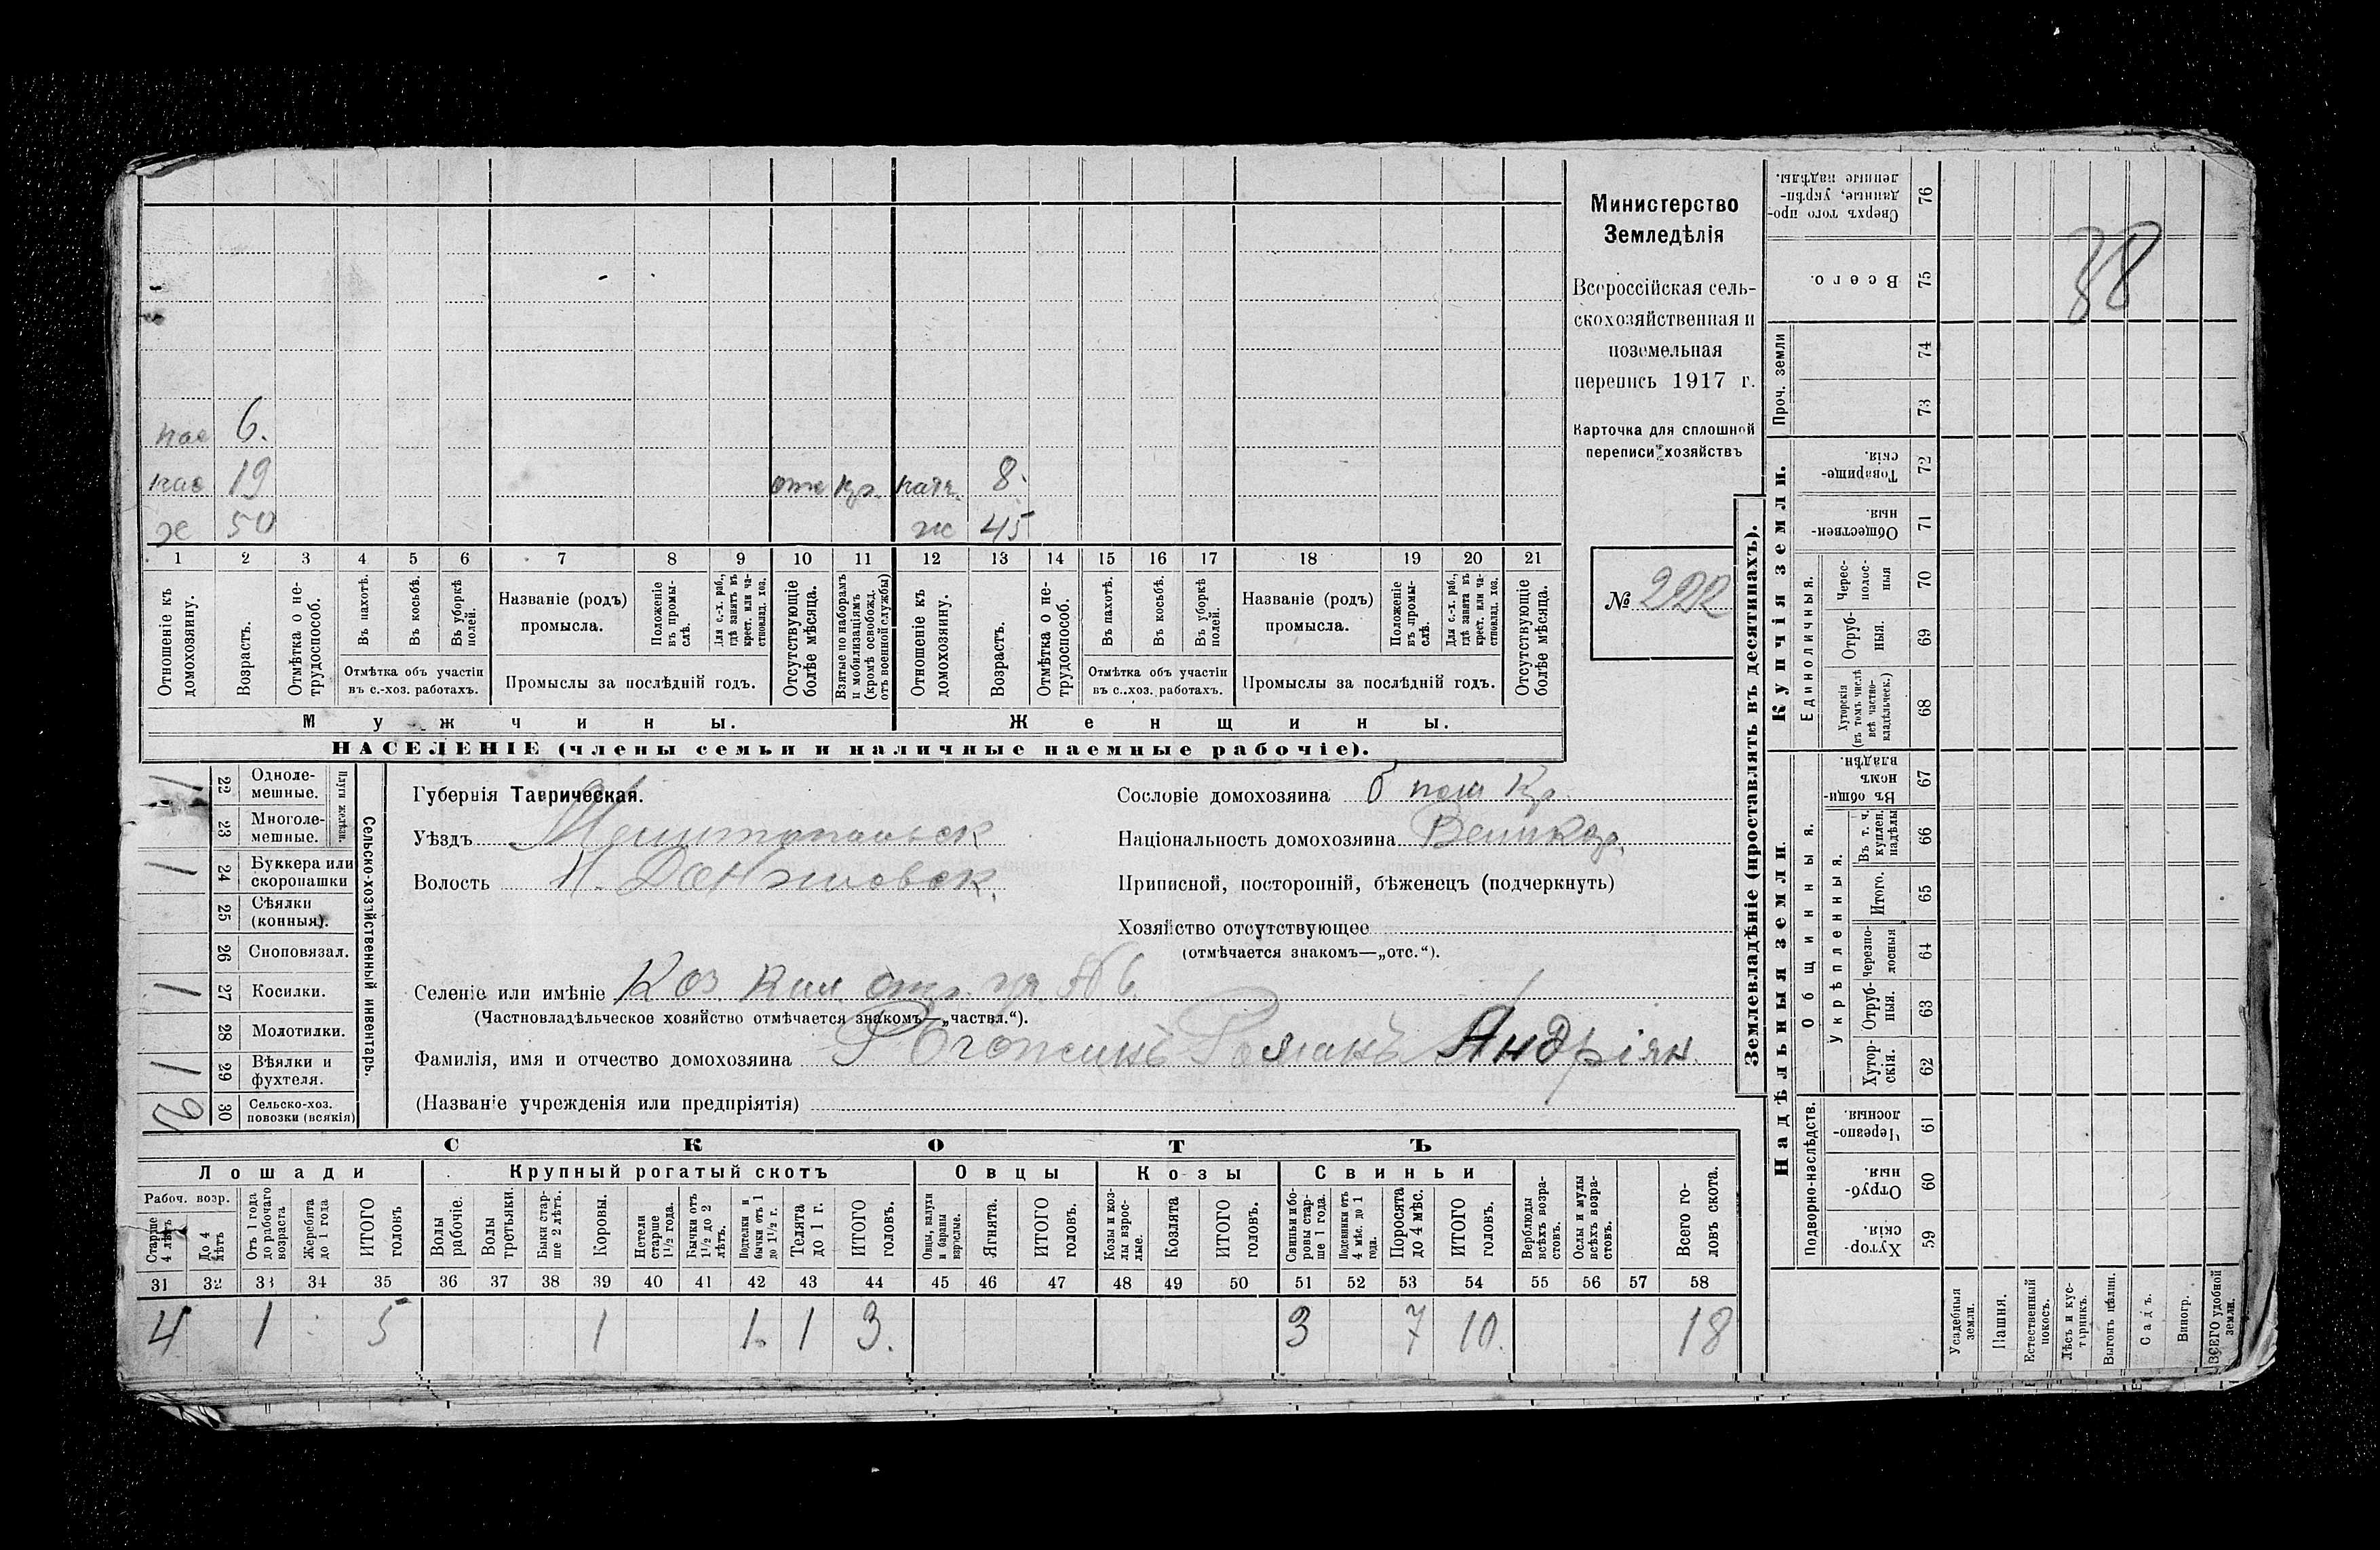 Министерство
Земледѣлія
Всероссійская сель-
скохозяйственная и
поземельная
перепись 1917 г.
Карточка для сплошной
переписи хозяйствъ
№ 222
6.
19
8.
50
ж 45
1 2 3 4 5 6 7 8 9 10 11 12 13 14 15 16 17 18 19 20 21
Отношеніе къ домохозяину.
Возрастъ.
Отмѣтка о не-трудоспособ.
Въ пахотѣ.
Въ косьбѣ.
Въ уборкѣ полей.
Отмѣтка объ участіи
въ с.-хоз. работахъ.
Названіе (родъ)
промысла.
Положеніе въ промы-слѣ.
Для с.-х. раб., гдѣ занятъ въ крест. или ча-стновлад. хоз.
Промыслы за послѣдній годъ.
Отсутствующіе болѣе мѣсяца.
Взятые по наборамъ и мобилизаціямъ (кромѣ освобожд. отъ военной службы)
Отношеніе къ домохозяину.
Возрастъ.
Отмѣтка о не-трудоспособ.
Въ пахотѣ.
Въ косьбѣ.
Въ уборкѣ полей.
Отмѣтка объ участіи
въ с.-хоз. работахъ.
Названіе (родъ)
промысла.
Положеніе въ промы-слѣ.
Для с.-х. раб., гдѣ занята въ крест. или ча-стновлад. хоз.
Промыслы за послѣдній годъ.
Отсутствующіе болѣе мѣсяца.
Мужчины. Женщины.
НАСЕЛЕНІЕ (члены семьи и наличные наемные рабочіе).
Сельско-хозяйственный инвентарь.
Плуги желѣзн.
1 22 Одноле-мешные.
23 Многоле-мешные.
1 24 Буккера или скоропашки
25 Сѣялки (конныя).
26 Сноповязал.
1 27 Косилки.
28 Молотилки.
1 29 Вѣялки и фухтеля.
30 Сельско-хоз. повозки (всякія)
Губернія Таврическая.
Уѣздъ Мелитопольск
Волость
Селеніе или имѣніе
(Частновладѣльческое хозяйство отмѣчается знакомъ—„частвл.“).
Фамилія, имя и отчество домохозяина Рогожинъ Романъ Андріян.
(Названіе учрежденія или предпріятія)
Сословіе домохозяина
Національность домохозяина Великор.
Приписной, посторонній, бѣженецъ (подчеркнуть)
Хозяйство отсутствующее
(отмѣчается знакомъ—„отс.“).
СКОТЪ
Лошади Крупный рогатый скотъ Овцы Козы Свиньи
Рабоч. возр.
Старше 4 лѣтъ
До 4 лѣтъ
Отъ 1 года до рабочаго возраста
Жеребята до 1 года
ИТОГО головъ
Волы рабочіе.
Волы третьяки.
Быки стар-ше 2 лѣтъ.
Коровы.
Нетели старше 1½ года.
Бычки отъ 1½ до 2 лѣтъ.
Подтелки и бычки отъ 1 до 1½ г.
Телята до 1 г.
ИТОГО головъ.
Овцы, валухи и бараны взрослые.
Ягнята.
ИТОГО головъ.
Козы и коз-лы взрос-лые.
Козлята
ИТОГО головъ.
Свиньи и бо-ровы стар-ше 1 года.
Подсвинки отъ 4 мѣс. до 1 года.
Поросята до 4 мѣс.
ИТОГО головъ.
Верблюды всѣхъ возра-стовъ.
Ослы и мулы всѣхъ возра-стовъ.
Всего го-ловъ скота.
31 32 33 34 35 36 37 38 39 40 41 42 43 44 45 46 47 48 49 50 51 52 53 54 55 56 57 58
4 1 5 1 1 1 3. 3 7 10. 18
Землевладѣніе (проставлять въ десятинахъ).
Сверхъ того про-данные, укрѣп-ленные надѣлы. 76
Всего. 75
38
Проч. земли
74
73
Купчія земли.
Товарище-скія. 72
Обществен-ныя. 71
Единоличныя.
Черес-полос-ныя 70
Отруб-ныя. 69
Хуторскія (въ томъ числѣ всѣ частно-владѣльческ.) 68
Надѣльныя земли.
Общинныя.
Въ общи-номъ владѣн. 67
Укрѣпленныя.
Въ т. ч. куплен. надѣлы 66
Итого. 65
Черезпо-лосныя 64
Отруб-ныя. 63
Хутор-скія. 62
Подворно-наслѣдств.
Черезпо-лосныя. 61
Отруб-ныя. 60
Хутор-скія. 59
Усадебныя земли.
Пашня.
Естественный покосъ.
Лѣсъ и кус-тарникъ.
Выгонъ цѣлин.
Садъ.
Виногр.
ВСЕГО удобной земли.